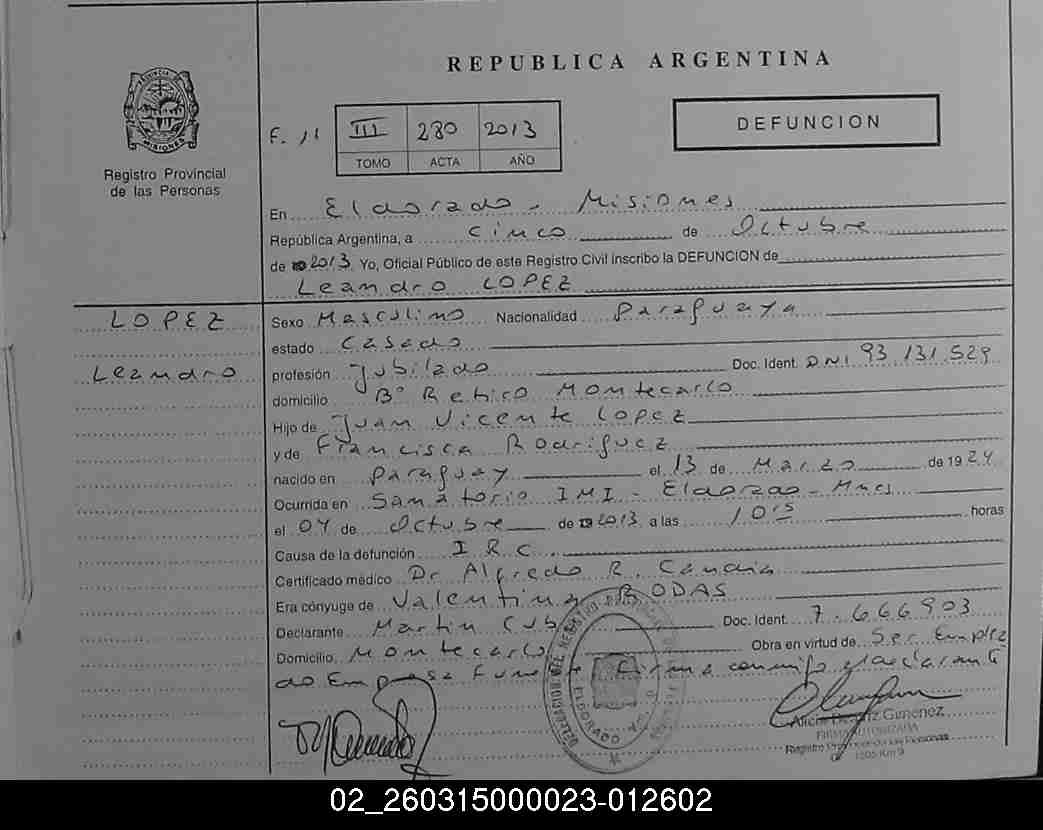 REPUBLICA ARGENTINA
PROVINCIA DE MISIONES
Registro Provincial
de las Personas
F. 11
III 280 2013
TOMO ACTA AÑO
DEFUNCION
En Eldorado - Misiones
República Argentina, a cinco de Octubre
de 2013 Yo, Oficial Público de este Registro Civil inscribo la DEFUNCION de
Leandro LOPEZ
LOPEZ
Leandro
Sexo Masculino Nacionalidad Paraguaya
estado Casado
profesión Jubilado Doc. Ident. DNI 93.131.529
domicilio B° Retiro Montecarlo
Hijo de Juan Vicente Lopez
y de Francisca Rodriguez
nacido en Paraguay el 13 de Marzo de 1924
Ocurrida en Sanatorio IMI - Eldorado - Mnes
el 04 de Octubre de 2013 a las 10:15 horas
Causa de la defunción I R C
Certificado médico Dr Alfredo R. Candia
Era cónyuge de Valentina RODAS
Declarante Martin Cub Doc. Ident. 7.666903
Domicilio Montecarlo Obra en virtud de Ser Emplea
do Empresa Funebre Firma conmigo el declarante
DELEGACION DEL REGISTRO PROVINCIAL DE
ELDORADO
Alicia Beatriz Gimenez
FIRMA AUTORIZADA
Registro Provincial de las Personas
Km 9
02_260315000023-012602